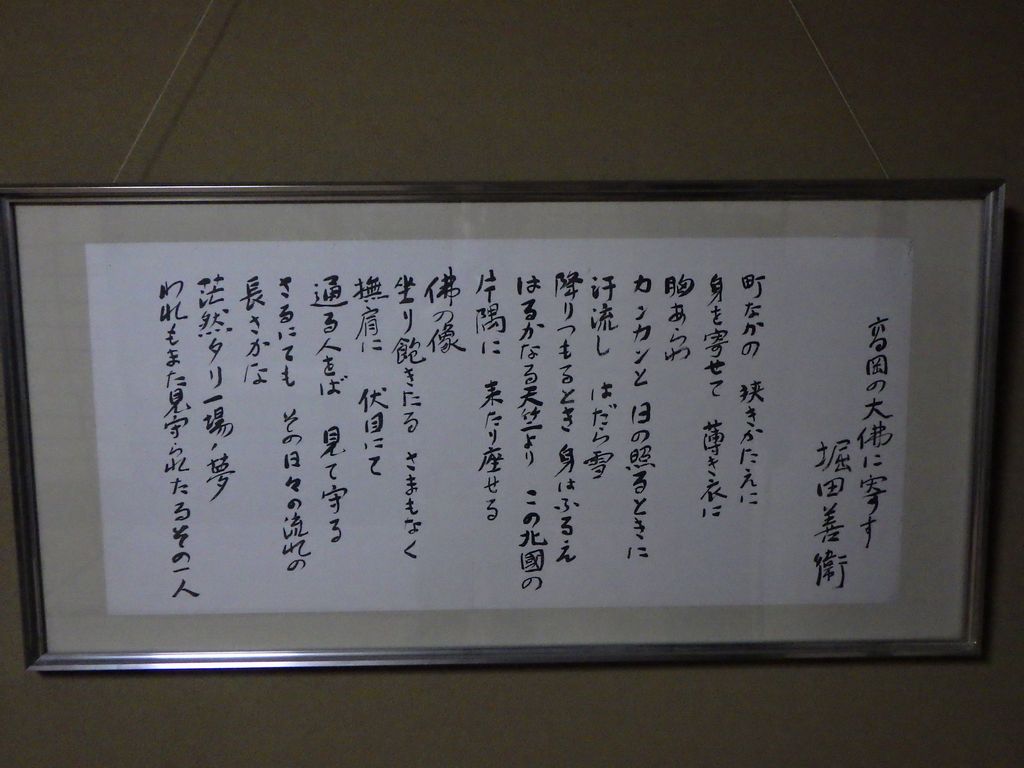 高岡の大佛に寄す
堀田善衞
町なかの 狭きかたえに
身を寄せて 薄き衣に
胸あらわ
カンカンと 日の照るときに
汗流し はだら雪
降りつもるとき 身はふるえ
はるかなる天竺より この北國の
片隅に 来たり座せる
佛の像
坐り飽きたる さまもなく
撫肩に 伏目にて
通る人をば 見て守る
さるにても その日々の流れの
長さかな
茫然タリ一場ノ夢
われもまた見守られたるその一人